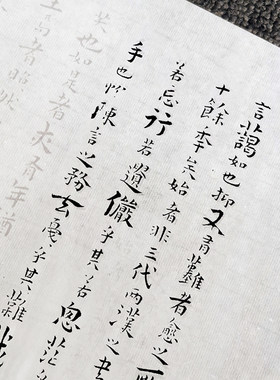 言藹如也抑又有難者愈之所
十餘年矣始者非三代兩漢之書
若忘行若遺儼乎其若思茫
手也惟陳言之務去戛乎其難哉
笑也如是者亦有年猶
者昭